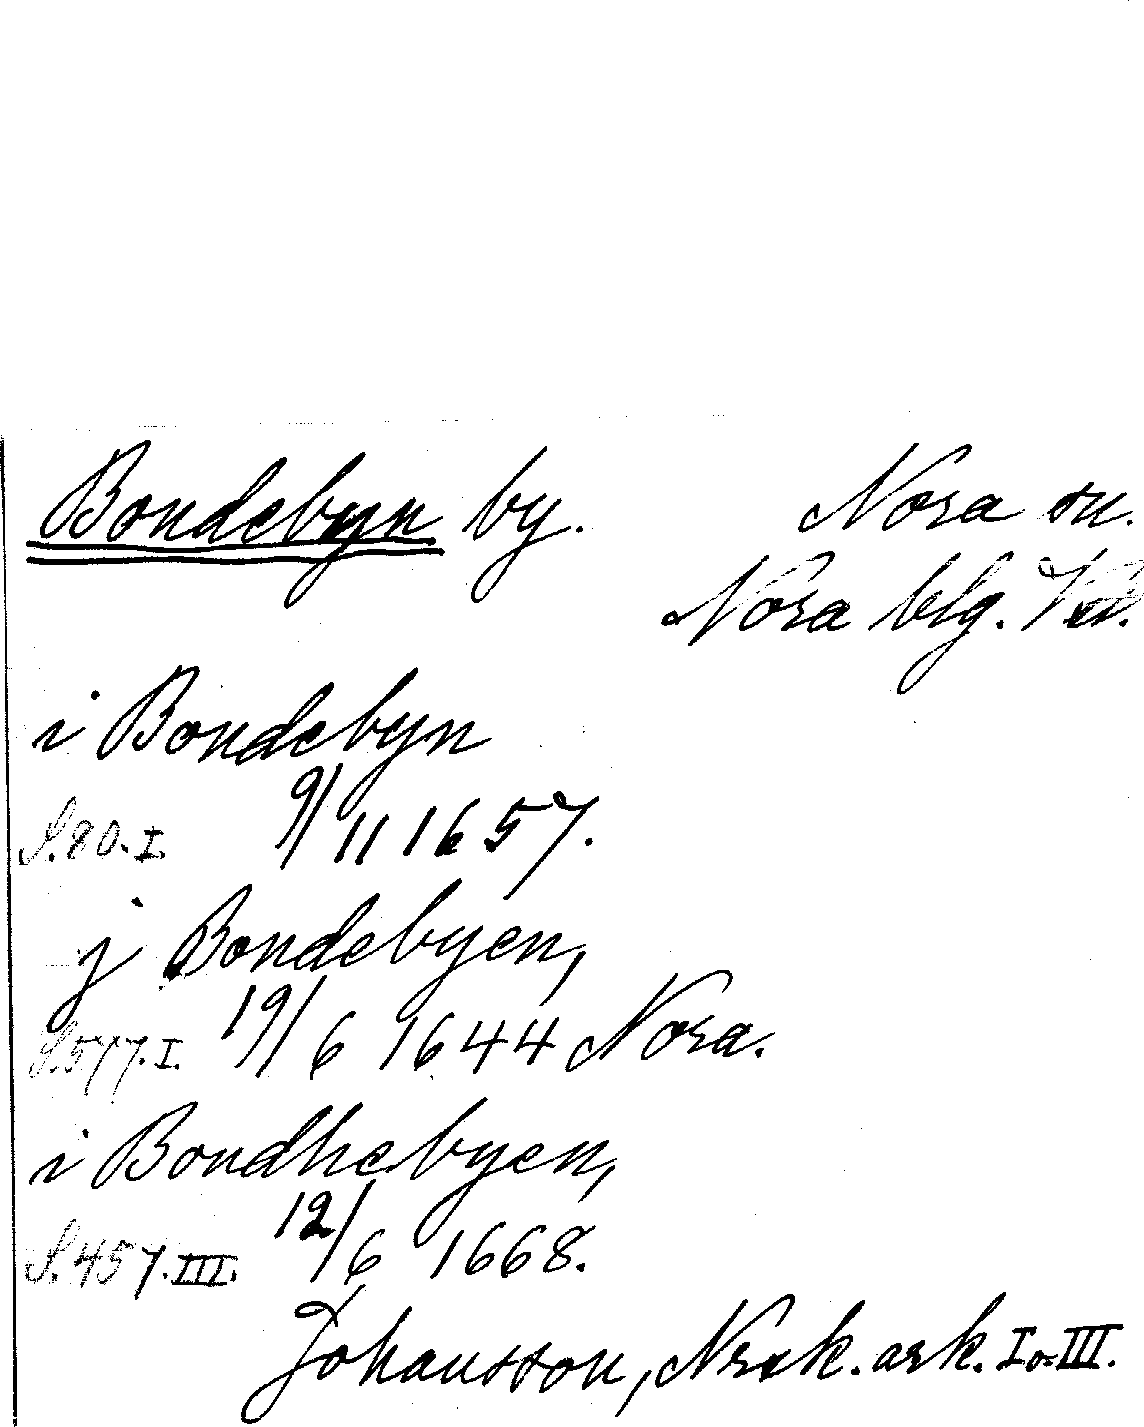 Bondebyn by. Nora sn.
Nora blg. Vstl.
i Bondebyn
S. 80. I. 9/11 1657.
j Bondebyen,
S. 577. I. 19/6 1644 Nora.
i Bondhebyen,
S. 457. III. 12/6 1668.
Johansson, Nrsk. ark. I o. III.